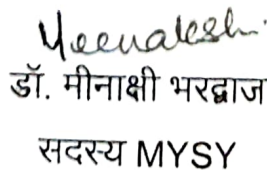 Meenakshi
डॉ. मीनाक्षी भरद्वाज
सदस्य MYSY